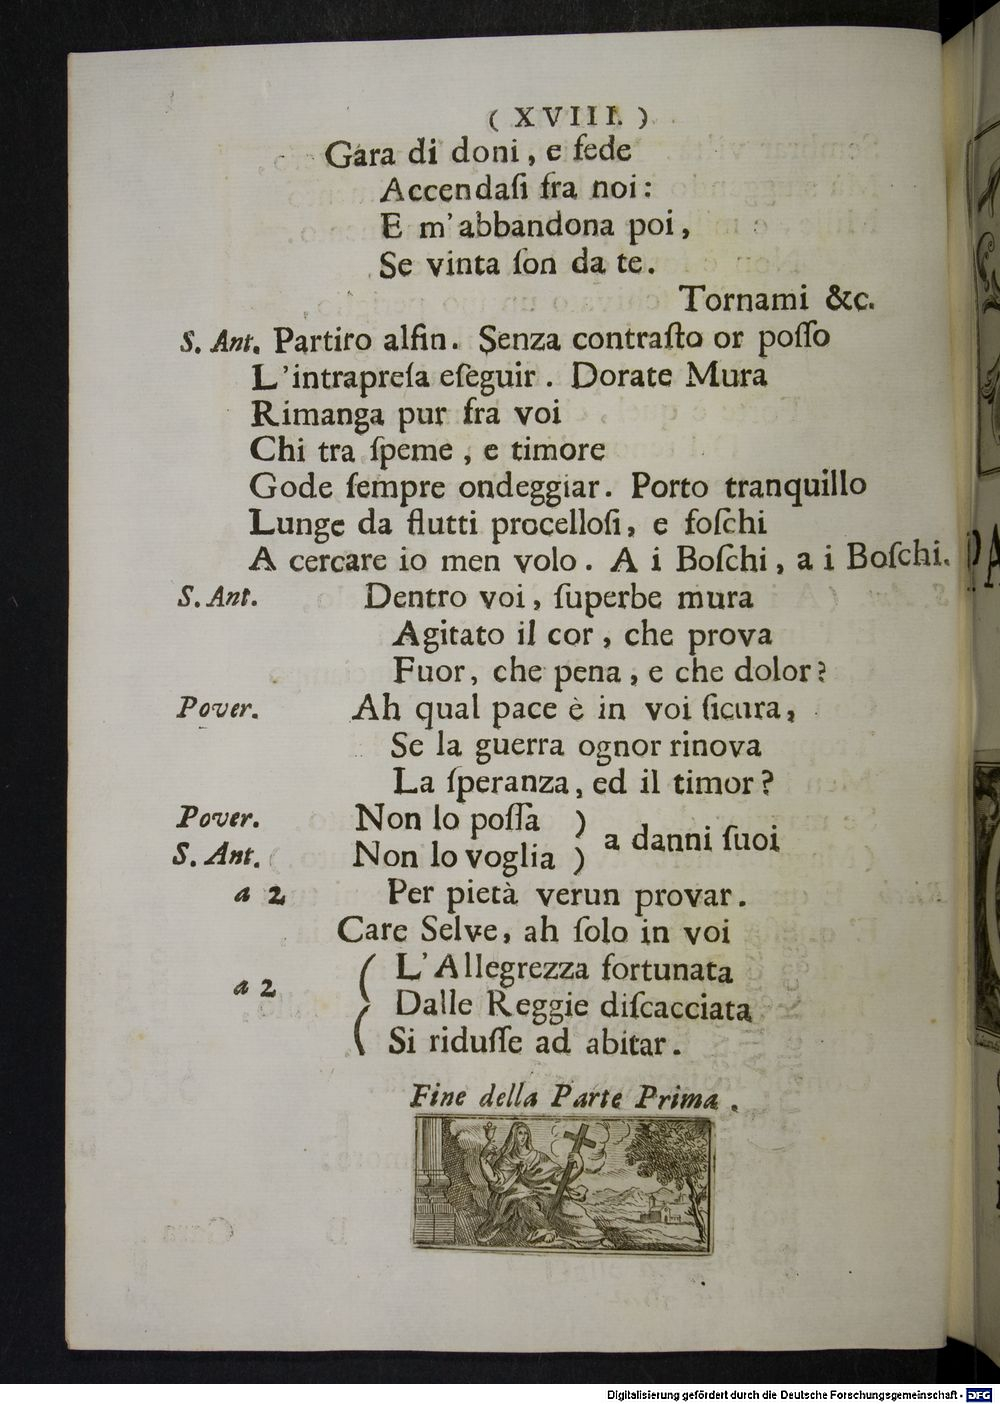 ( XVIII. )
Gara di doni, e fede
Accendaſi fra noi:
E m'abbandona poi,
Se vinta ſon da te.
Tornami &c.
S. Ant. Partiro alfin. Senza contraſto or poſſo
L'intrapreſa eſeguir. Dorate Mura
Rimanga pur fra voi
Chi tra ſpeme, e timore
Gode ſempre ondeggiar. Porto tranquillo
Lunge da flutti procelloſi, e foſchi
A cercare io men volo. A i Boſchi, a i Boſchi.
S. Ant. Dentro voi, ſuperbe mura
Agitato il cor, che prova
Fuor, che pena, e che dolor?
Pover. Ah qual pace è in voi ſicura,
Se la guerra ognor rinova
La ſperanza, ed il timor?
Pover. Non lo poſſa )
S. Ant. Non lo voglia ) a danni ſuoi
a 2 Per pietà verun provar.
Care Selve, ah ſolo in voi
a 2 ( L'Allegrezza fortunata
Dalle Reggie diſcacciata
( Si riduſſe ad abitar.
Fine della Parte Prima.
PA
Digitalisierung gefördert durch die Deutsche Forschungsgemeinschaft - DFG